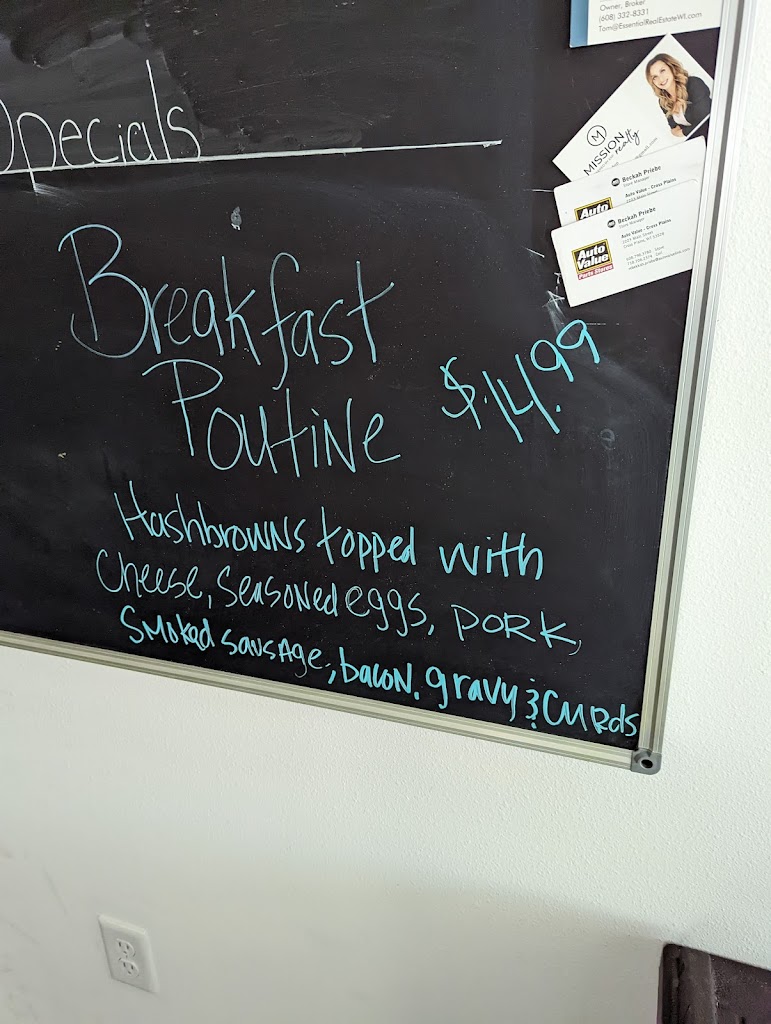 Specials
Breakfast
Poutine
$.14.99
Hashbrowns topped with
Cheese, Seasoned eggs, pork,
Smoked sausage, bacon, gravy & curds
Owner, Broker
(608) 332-8331
Tom@EssentialRealEstateWI.com
M
MISSION
realty
Beckah Priebe
Store Manager
Auto Value - Cross Plains
Auto
Beckah Priebe
Store Manager
Auto Value - Cross Plains
Auto
Value
Parts Stores